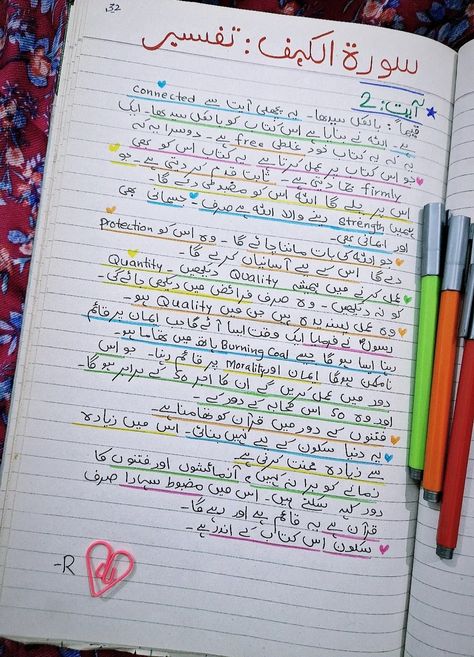 32
سورة الکہف : تفسیر
آیت: 2
قیما : بالکل سیدھا۔ یہ پچھلی آیت سے connected
ہے۔ اللہ نے بتایا ہے اس کتاب کو بالکل سیدھا۔ ایک
یہ کہ یہ کتاب خود غلطی free ہے۔ دوسرا یہ کہ
جو اس کتاب پر عمل کرتا ہے یہ کتاب اس کو بھی
firmly جما دیتی ہے۔ ثابت قدم کر دیتی ہے۔ جو
اس پر چلے گا اللہ اس کو مضبوطی دے گا۔
ہمیں strength دینے والا اللہ ہے صرف۔ جسمانی بھی
اور ایمانی بھی۔
جو اللہ کی بات مانتا جائے گا۔ وہ اس کو protection
دے گا۔ اس کے لیے آسانیاں کرے گا۔
عمل کرنے میں ہمیشہ Quality دیکھیں۔ Quantity
کو نہ دیکھیں۔ وہ صرف فرائض میں دیکھی جائے گی۔
وہ عمل پسندیدہ ہیں جن میں Quality ہو۔
رسولؐ نے فرمایا ایک وقت ایسا آئے گا جب ایمان پر قائم
رہنا ایسا ہوگا جیسے Burning Coal ہاتھ میں تھاما ہو۔
ناممکن ہوگا ایمان اور Morality پر قائم رہنا۔ جو اس
دور میں عمل کریں گے ان کا اجر 50 کے برابر ہوگا۔
اور وہ 50 اس صحابہ کے دور کے۔
فتنوں کے دور میں قرآن کو تھامنا ہے۔
یہ دنیا سکون کے لیے نہیں بنائی اس میں زیادہ
سے زیادہ محنت کرنی ہے۔
زمانے کو برا نہ کہیں، آزمائشوں اور فتنوں کا
دور کہہ سکتے ہیں۔ اس میں مضبوط سہارا صرف
قرآن ہے یہ قائم ہے اور رہے گا۔
سکون اس کتاب کے اندر ہے۔
-R